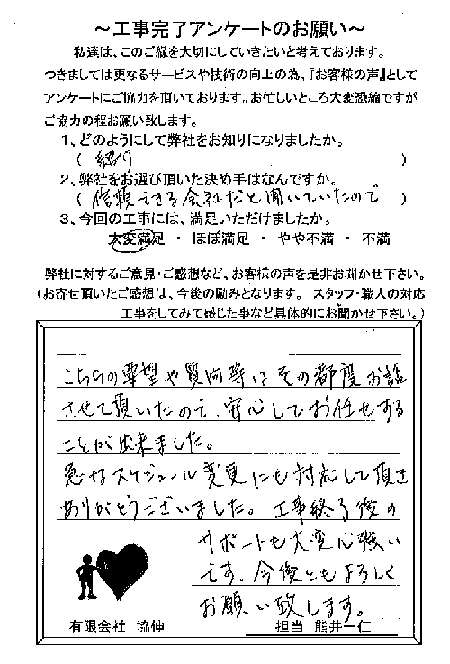 ～工事完了アンケートのお願い～
私達は、このご縁を大切にしていきたいと考えております。
つきましては更なるサービスや技術の向上の為、『お客様の声』として
アンケートにご協力を頂いております。お忙しいところ大変恐縮ですが
ご協力の程お願い致します。
1、どのようにして弊社をお知りになりましたか。
（ 紹介 ）
2、弊社をお選び頂いた決め手はなんですか。
（ 信頼できる会社だと聞いていたので ）
3、今回の工事には、満足いただけましたか。
大変満足 ・ ほぼ満足 ・ やや不満 ・ 不満
弊社に対するご意見・ご感想など、お客様の声を是非お聞かせ下さい。
（お寄せ頂いたご感想は、今後の励みとなります。 スタッフ・職人の対応
工事をしてみて感じた事など具体的にお聞かせ下さい。）
こちらの要望や質問等はその都度お話
させて頂いたので、安心してお任せする
ことが出来ました。
急なスケジュール変更にも対応して頂き
ありがとうございました。工事終了後の
サポートも大変心強い
です。今後ともよろしく
お願い致します。
有限会社 協伸
担当 熊井一仁